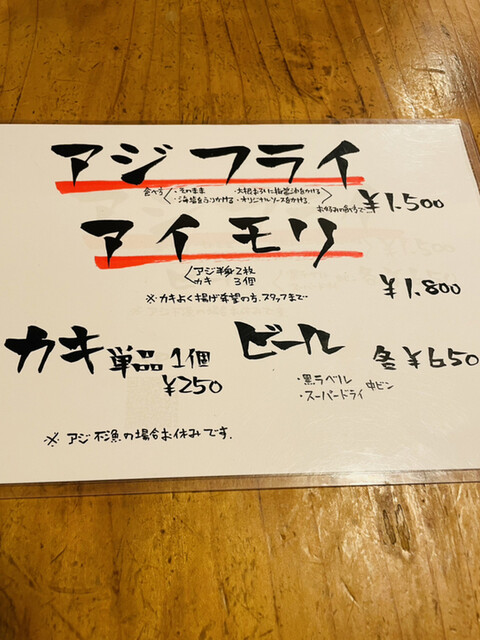 アジフライ
食べ方 ・そのまま ・大根おろしに指宿油をかける
・海塩をふりかける ・オリジナルソースをかける
お好みの食べ方で
¥1.500
アイモリ
アジ半身2枚
カキ 3個
¥1.800
※カキよく揚げ希望の方、スタッフまで
カキ 単品1個
¥250
ビール 各¥650
・黒ラベル
・スーパードライ 中ビン
※アジ不漁の場合お休みです.